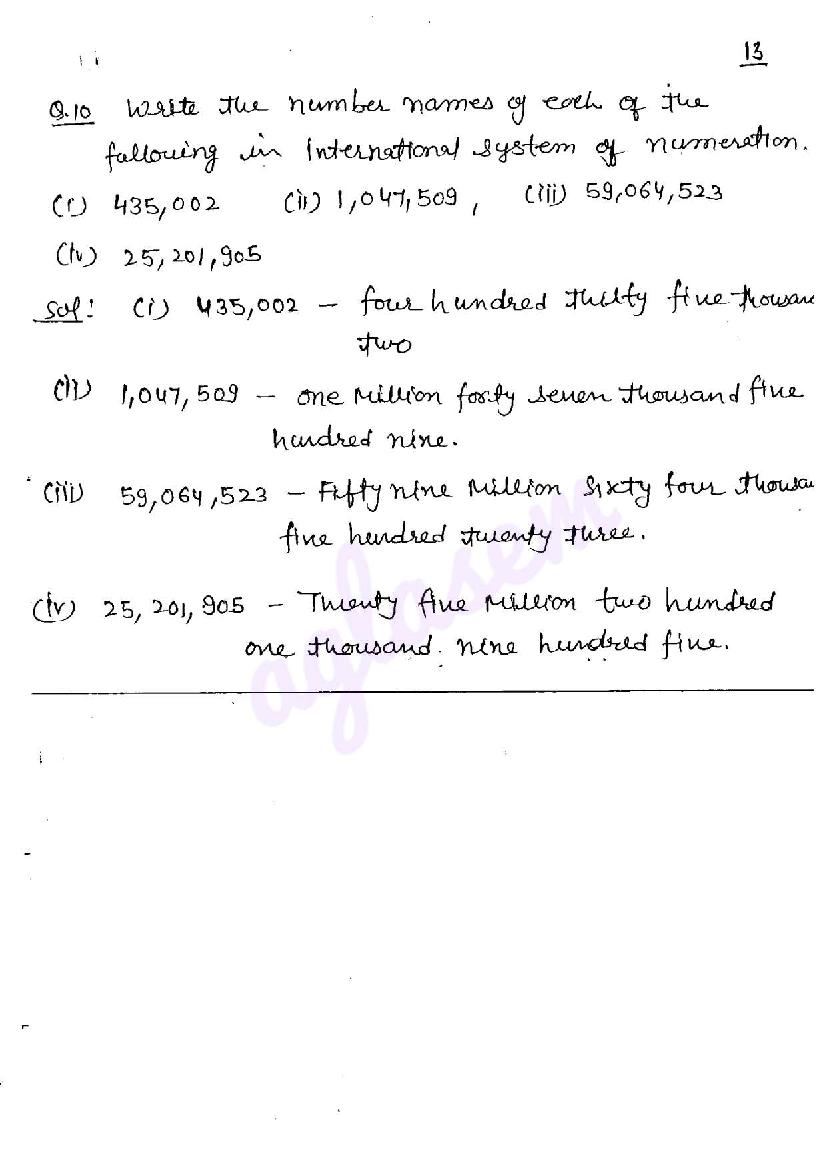 13
Q.10 Write the number names of each of the
following in International system of numeration.
(i) 435,002 (ii) 1,047,509, (iii) 59,064,523
(iv) 25,201,905
Sol: (i) 435,002 - four hundred thirty five thousan
two
(ii) 1,047,509 - one million forty seven thousand five
hundred nine.
(iii) 59,064,523 - Fifty nine million sixty four thousa
five hundred twenty three.
(iv) 25,201,905 - Twenty five million two hundred
one thousand. nine hundred five.
aglasem